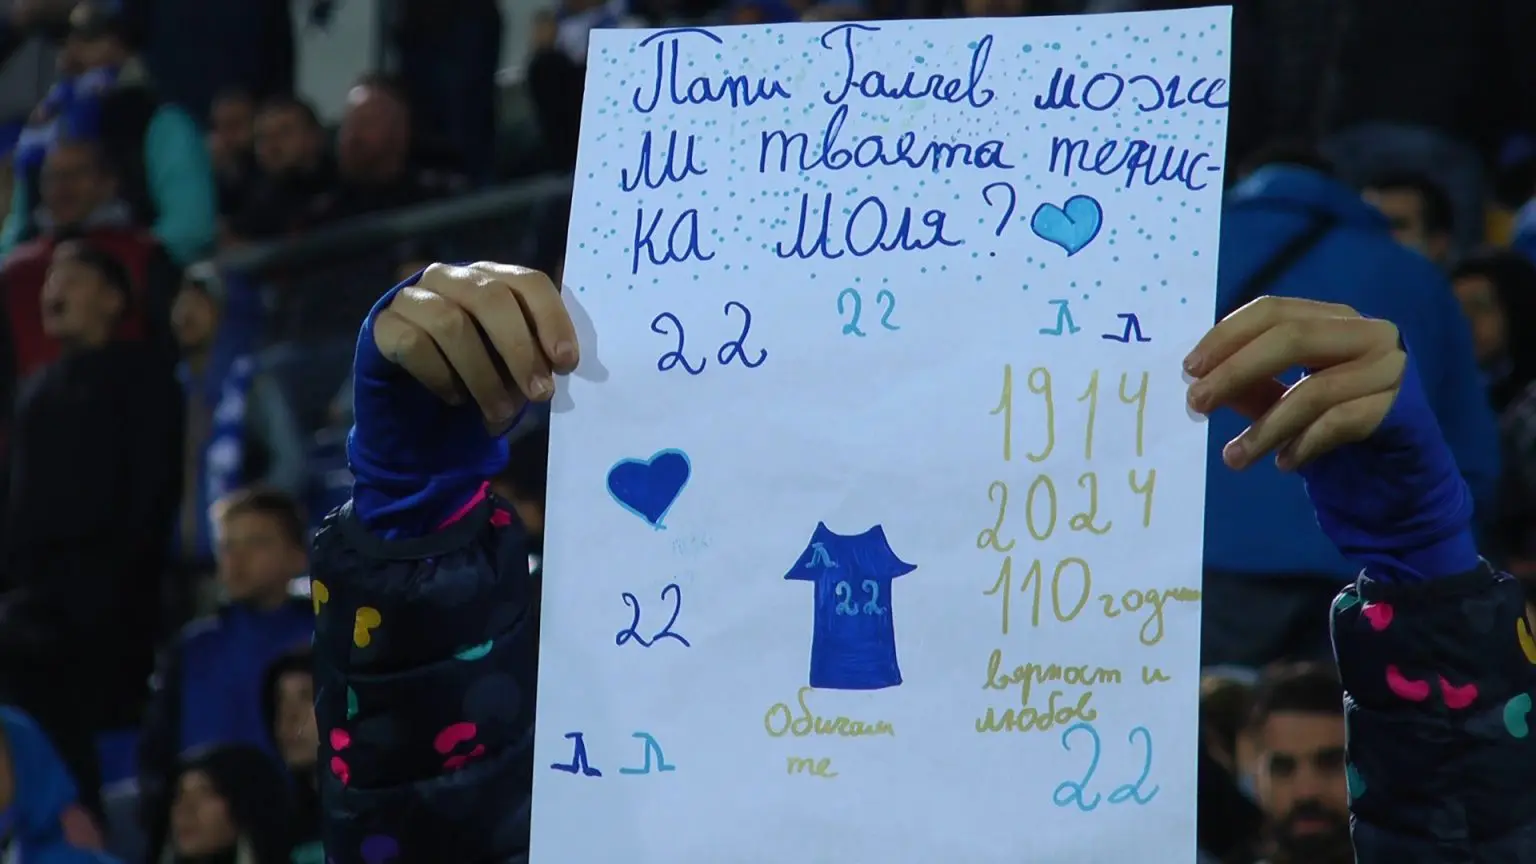 Папи Галчев може
ли твоята тенис-
ка моля?
22
22
Л Л
1914
2024
110 години
вярност и
любов
22
Л
22
Обичам
те
Л Л
22